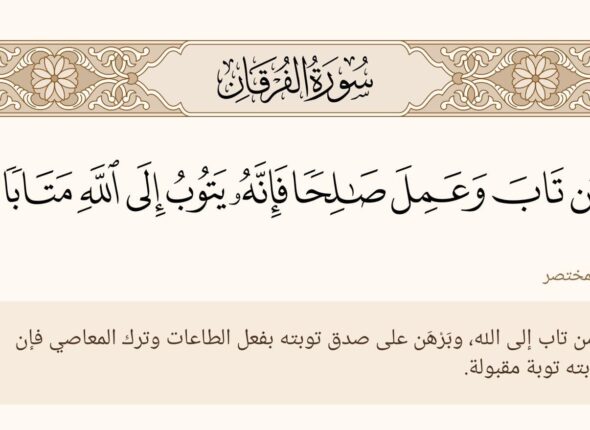 سُورَةُ الفُرْقَانِ
تَابَ وَعَمِلَ صَـٰلِحًا فَإِنَّهُۥ يَتُوبُ إِلَى ٱللَّهِ مَتَابًا
مختصر
تاب إلى الله، وبَرْهَن على صدق توبته بفعل الطاعات وترك المعاصي فإن
توبة مقبولة.